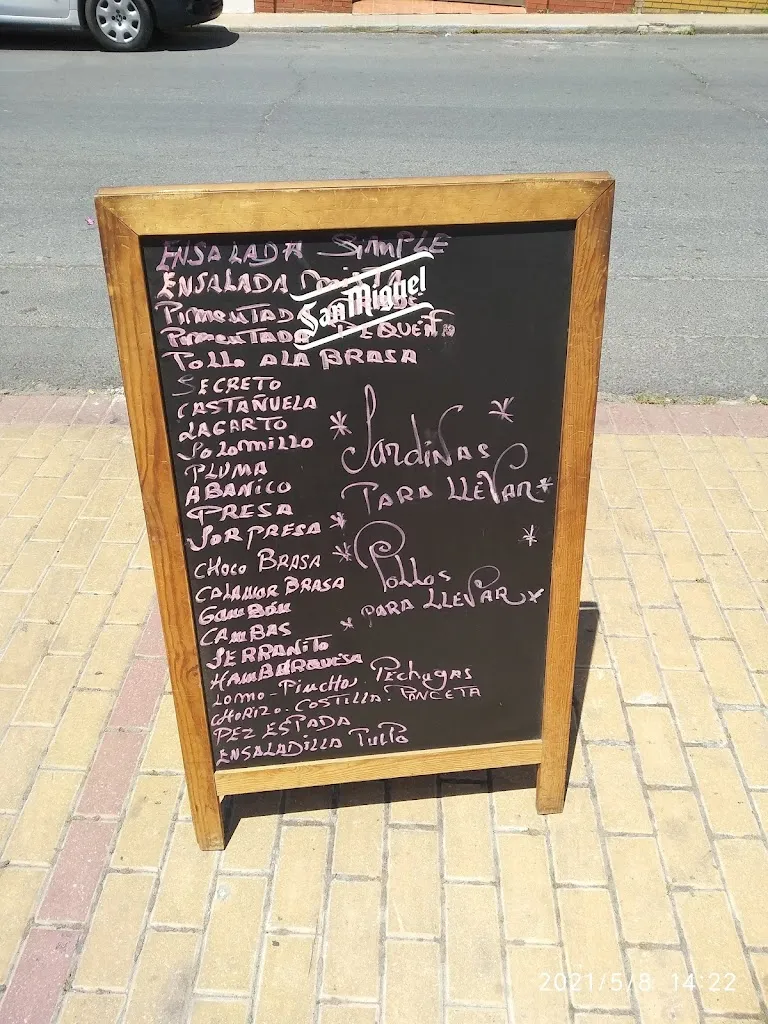 ENSALADA SIMPLE
ENSALADA MIXTA
San Miguel
PIMENTADA
PIMENTADA PEQUEÑA
POLLO A LA BRASA
SECRETO
CASTAÑUELA
LAGARTO
SOLOMILLO
PLUMA
ABANICO
PRESA
SORPRESA
CHOCO BRASA
CALAMAR BRASA
GAMBÓN
GAMBAS
SERRANITO
HAMBURGUESA
LOMO - PINCHO. PECHUGAS
CHORIZO. COSTILLA. PANCETA
PEZ ESPADA
ENSALADILLA PULPO
SARDINAS
PARA LLEVAR
POLLOS
PARA LLEVAR
2021/5/8 14:22